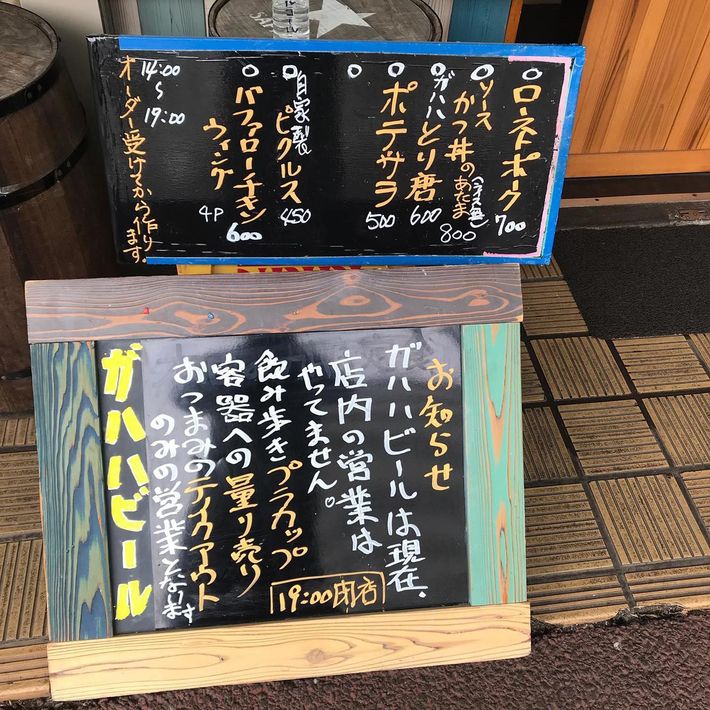 ローストポーク
700
ソースかつ丼のあたま
(ライス無)
800
ガハハとり唐
600
ポテサラ
500
自家製
ピクルス
450
バファローチキン
ウィング
4P
600
14:00
〜
19:00
オーダー受けてから作ります。
お知らせ
ガハハビールは現在、
店内の営業は
やってません。
飲み歩きプラカップ
容器への量り売り
おつまみのテイクアウト
のみの営業となります
19:00閉店
ガハハビール